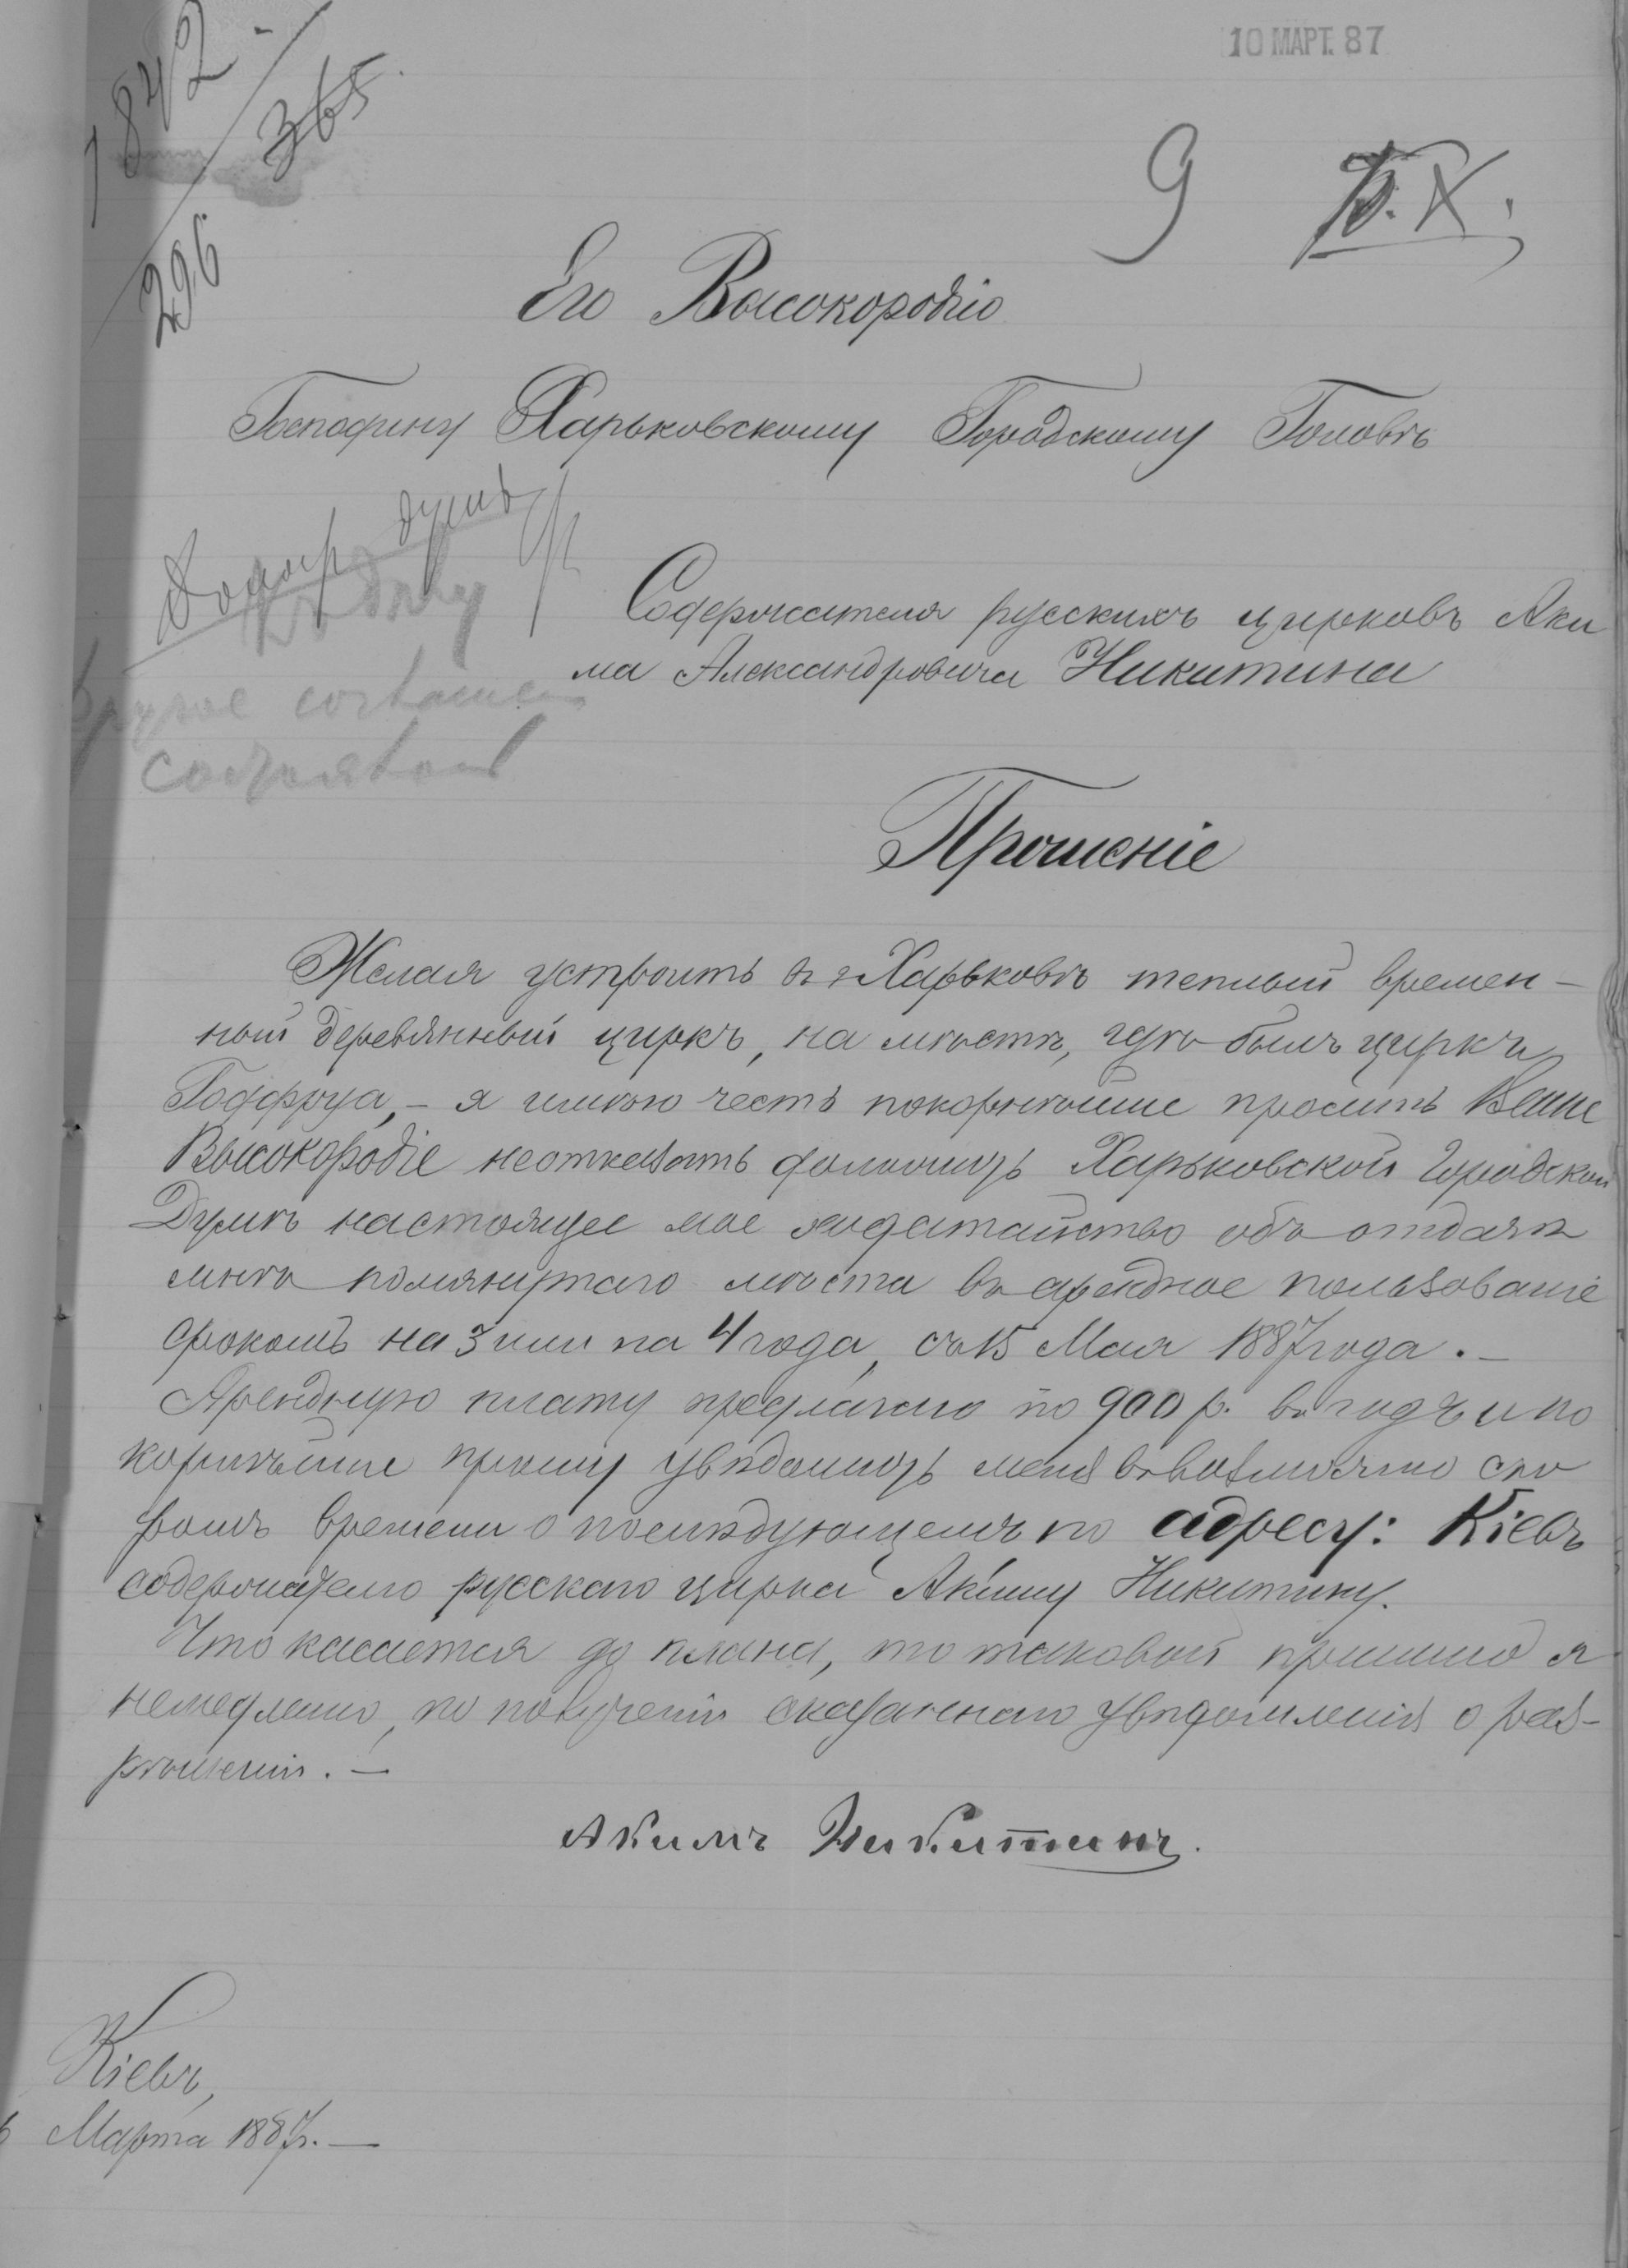 10 МАРТ. 87
1842
365
296
9 Б. Х.
Его Высокородію
Господину Харьковскому Городскому Головѣ
Содержателя русскихъ цирковъ Аки
ма Александровича Никитина
Прошеніе
Желая устроить въ г. Харьковѣ теплый времен-
ный деревянный циркъ, на мѣстѣ, гдѣ былъ циркъ
Годфруа, – я имѣю честь покорнѣйше просить Ваше
Высокородіе неотказать доложить Харьковской Городской
Думѣ настоящее мое ходатайство объ отдачѣ
мнѣ помянутаго мѣста въ арендное пользованіе
срокомъ на 3 или на 4 года, съ 15 Мая 1887 года. –
Арендную плату предлагаю по 900 р. въ годъ и по
корнѣйше прошу увѣдомить меня въ возможно ско
ромъ времени о послѣдующемъ по адресу: Кіевъ
содержателю русскаго цирка Акиму Никитину.
Что касается до плана, то таковой пришлю я
немедленно, по полученіи сказаннаго увѣдомленія о раз-
рѣшеніи. –
Акимъ Никитинъ.
Кіевъ,
6 Марта 1887 г. –